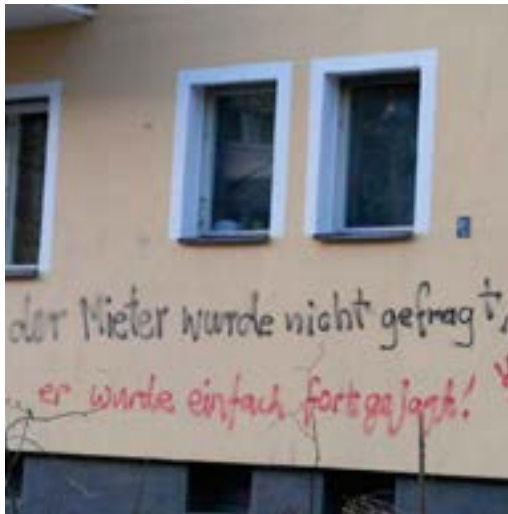 der Mieter wurde nicht gefragt,
.. er wurde einfach fortgejagt!